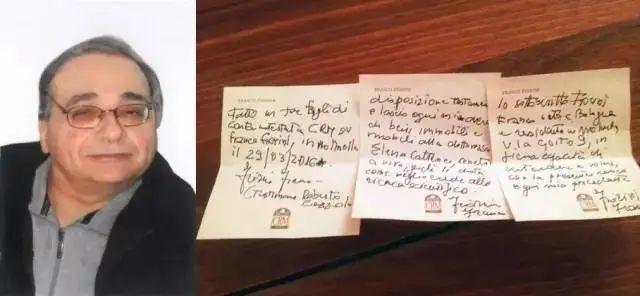 FRANCO FIORINI
Fatto in tre fogli di
carta intestati CRM su
Franco Fiorini, in Molinella
il 29/03/201
Fiorini Franco
Testimone Roberto
CRM
FRANCO FIORINI
disposizione
e lascio ogni mio avere
di beni immobili e
mobili alla dottoressa
Elena Cattaneo, senatrice
a vita,
come meglio crede alla
ricerca scientifica
Fiorini
Franco
CRM
FRANCO FIORINI
Io sottoscritto Fiorini
Franco nato a Bologna
e residente in Molinella
Via Goito 9, in
piena
intendere e volere,
con la presente revoco
ogni mia precedente
Fiorini
Franco
CRM